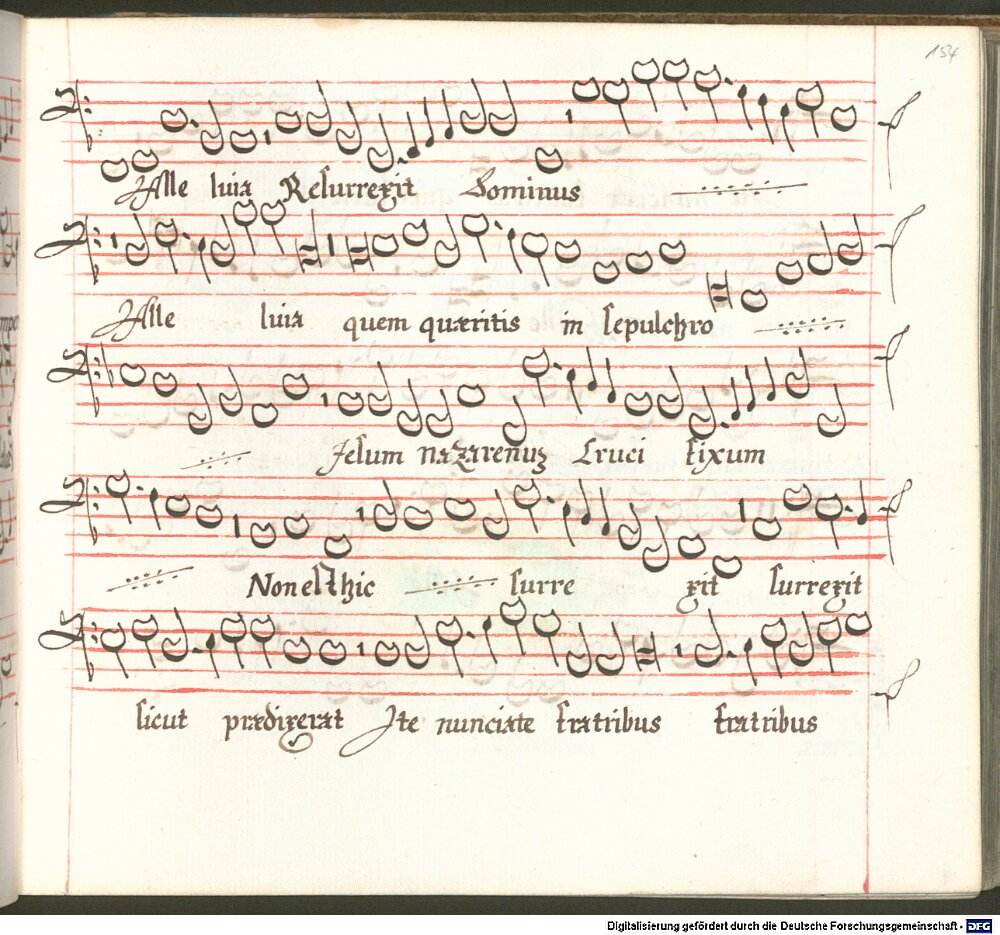 154
Alle luia Resurrexit Dominus
Alle luia quem quæritis in sepulchro
Jesum nazarenus Cruci fixum
Non est hic surre xit surrexit
sicut prædixerat Ite nunciate fratribus fratribus
Digitalisierung gefördert durch die Deutsche Forschungsgemeinschaft - DFG